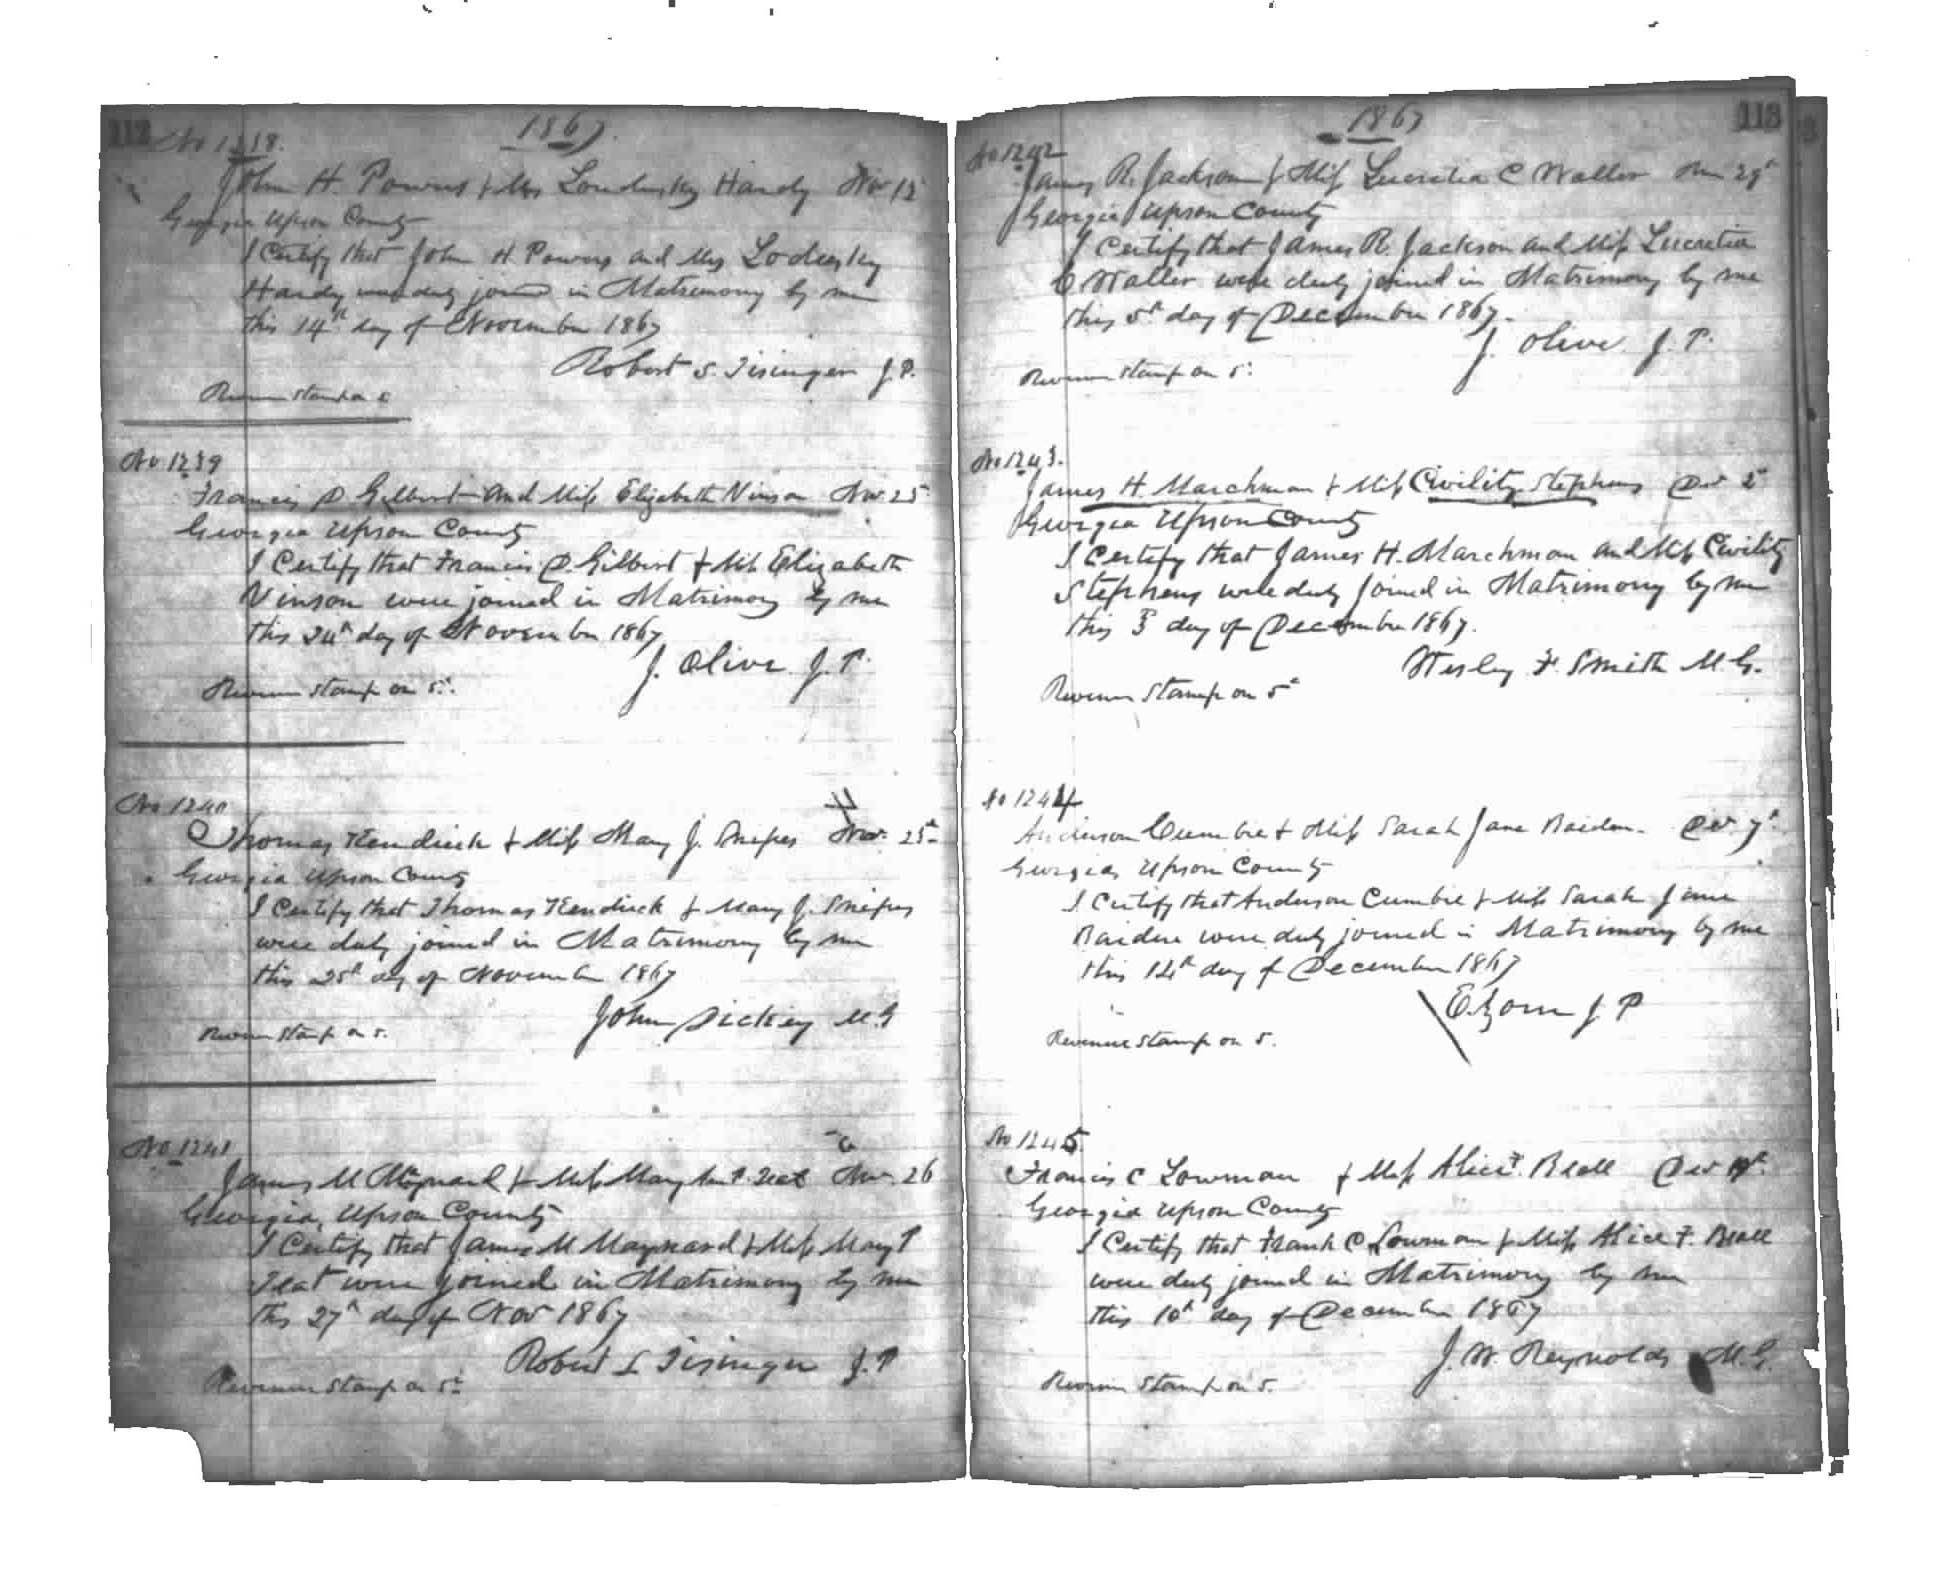 112
1867.
No 1238.
John H. Powers & Mrs Loudusky Hardy Nov 13
Georgia Upson County
I Certify that John H Powers and Mrs Lodusky
Hardy were duly joined in Matrimony by me
this 14th day of November 1867
Robert S. Tisinger J.P.
Revenue Stamp on 5
No 1239
Francis D Gilbert and Miss Elizabeth Vinson Nov 25
Georgia Upson County
I Certify that Francis D. Gilbert & Miss Elizabeth
Vinson were joined in Matrimony by me
this 24th day of November 1867
J. Olive J. P.
Revenue Stamp on 5c.
No 1240
Thomas Kendrick & Miss Mary J. Snipes Nov. 25th
Georgia Upson County
I Certify that Thomas Kendrick & Mary J. Snipes
were duly joined in Matrimony by me
this 25th day of November 1867
John Dickey M.G
Revenue Stamp on 5.
No 1241
James M Maynard & Miss Mary P. Teat Nov. 26
Georgia, Upson County
I Certify that James M Maynard & Miss Mary P
Teat were joined in Matrimony by me
this 27th day of Nov 1867
Robert S Tisinger J. P
Revenue Stamp on 5c
113
1867
No 1242
James R. Jackson & Miss Lucretia C Waller Nov 29th
Georgia Upson County
I Certify that James R. Jackson and Miss Lucretia
C Waller were duly joined in Matrimony by me
this 5th day of December 1867.
J. Olive. J. P.
Revenue Stamp on 5c
No 1243.
James H. Marchman & Miss Civility Stephens Dec 2d
Georgia Upson County
I Certify that James H. Marchman and Miss Civility
Stephens were duly joined in Matrimony by me
this 3 day of December 1867.
Wesley F. Smith M. G.
Revenue Stamp on 5c
No 1244
Anderson Cumbie & Miss Sarah Jane Raiden. Dec 7th
Georgia Upson County
I Certify that Anderson Cumbie & Miss Sarah Jane
Raiden were duly joined in Matrimony by me
this 12th day of December 1867
E. Zorn J P
Revenue Stamp on 5.
No 1245
Francis C Lowman & Miss Alice F. Beall Dec 9th
Georgia Upson County
I Certify that Frank C Lowman & Miss Alice F. Beall
were duly joined in Matrimony by me
this 10th day of December 1867
J. W. Reynolds M. G.
Revenue Stamp on 5.